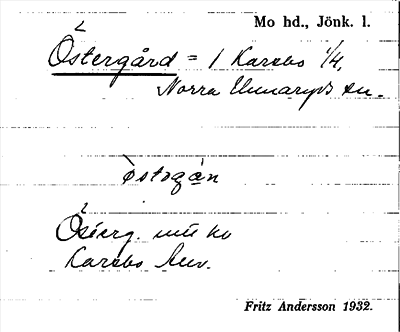 Mo hd., Jönk. l.
Östergård = 1 Karsbo 1/4,
Norra Unnaryds sn.
òstogàn
Österg.
Karsbo
Fritz Andersson 1932.